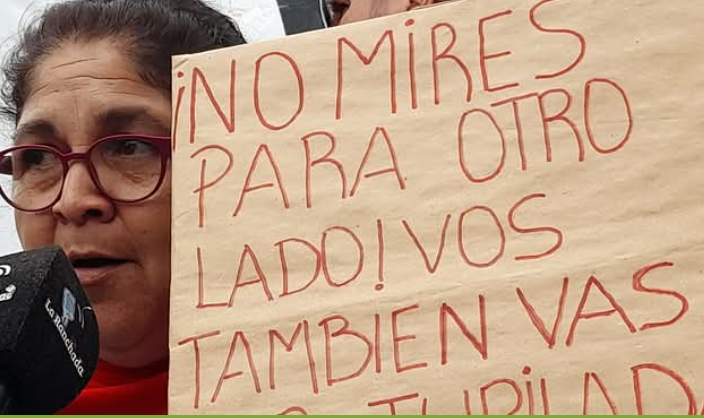 ¡NO MIRES
PARA OTRO
LADO! VOS
TAMBIEN VAS
JUBILAD
La Ranchada